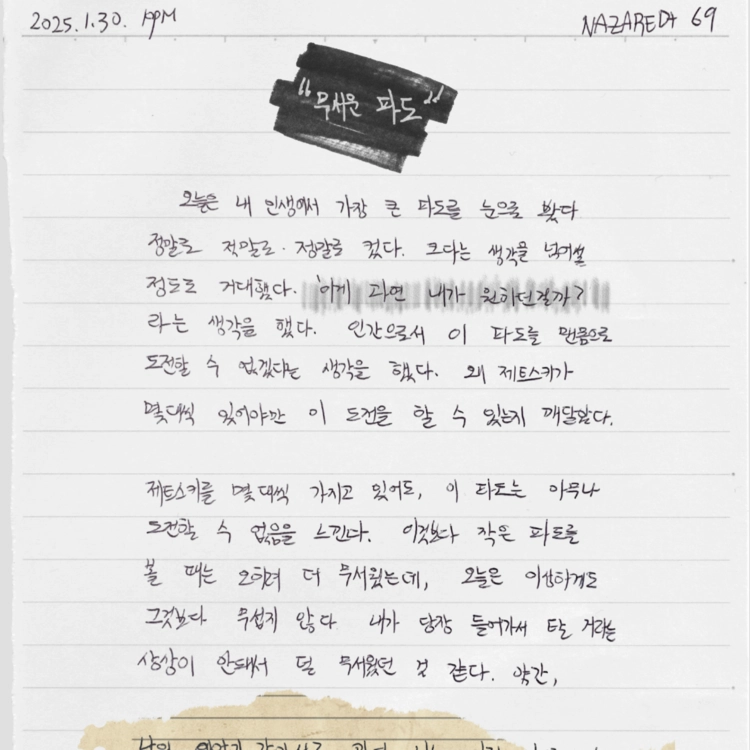 2025.1.30. 19PM
NAZAREDA 69
"무서운 파도"
오늘은 내 인생에서 가장 큰 파도를 눈으로 봤다
정말로 정말로. 정말로 컸다. 크다는 생각을 넘어설
정도로 거대했다. '이게 과연 내가 원하던걸까?
라는 생각을 했다. 인간으로서 이 파도를 맨몸으로
도전할 수 없겠다는 생각을 했다. 왜 제트스키가
몇대씩 있어야만 이 도전을 할 수 있는지 깨달았다.
제트스키를 몇대씩 가지고 있어도, 이 파도는 아무나
도전할 수 없음을 느낀다. 이것보다 작은 파도를
볼 때는 오히려 더 무서웠는데, 오늘은 이상하게도
그것보다 무섭지 않다 내가 당장 들어가서 탈 거라는
상상이 안돼서 덜 무서웠던 것 같다. 약간,